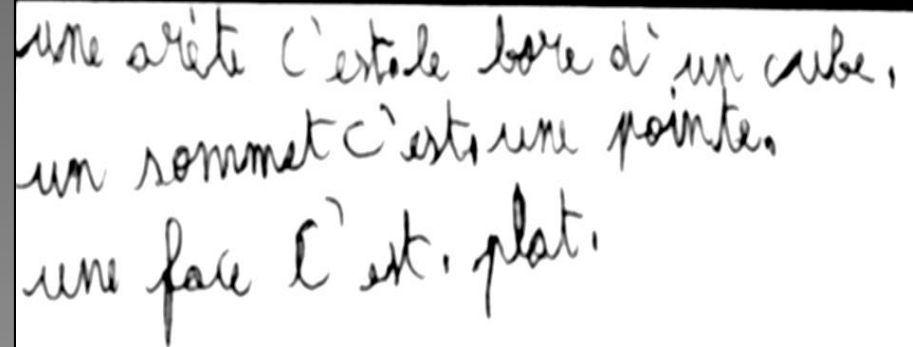 une arète c'est le bore d'un cube.
un sommet c'est une pointe.
une face c'est. plat.